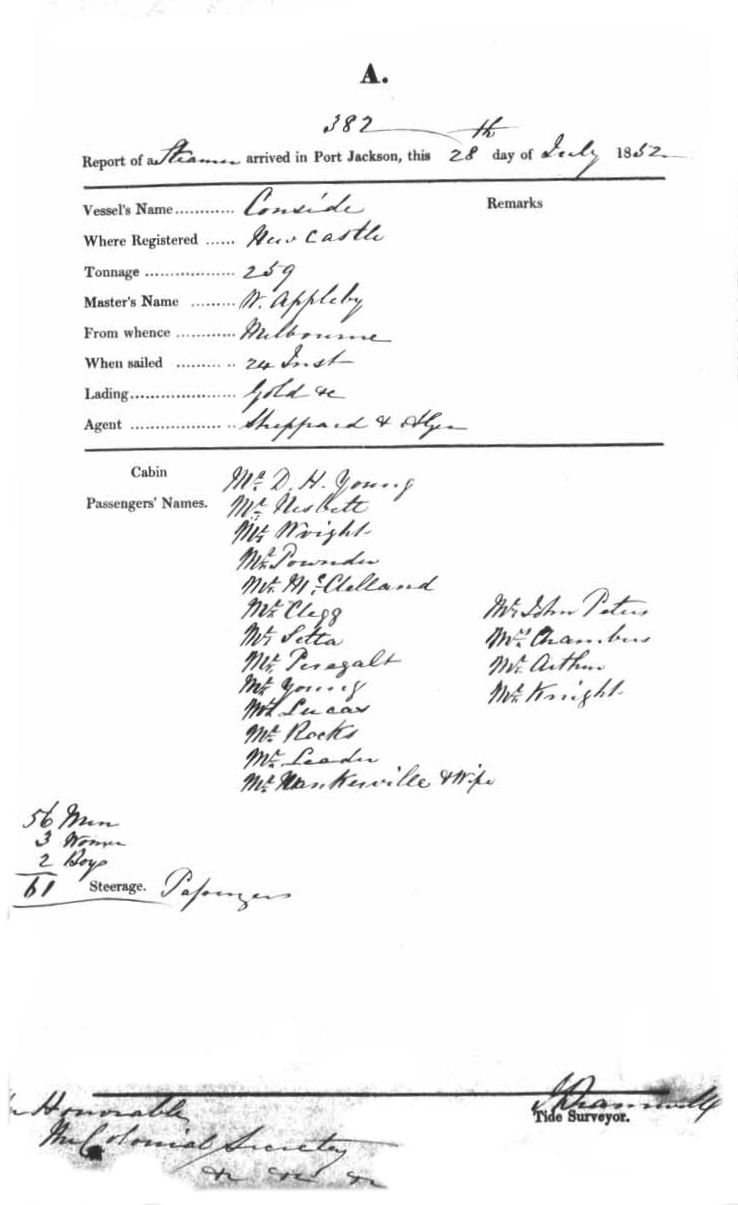 A.
382
Report of a Steamer arrived in Port Jackson, this 28th day of July 1852
Vessel's Name............ Conside
Remarks
Where Registered ...... New Castle
Tonnage .................. 259
Master's Name ......... W. Appleby
From whence ............ Melbourne
When sailed ......... .. 24 Inst
Lading..................... Gold &c
Agent .................. .. Sheppard &
Cabin
Passengers' Names.
Mr. D. H. Young
Mr. Nesbett
Mr. Wright
Mr. Pownder
Mr. McClelland
Mr. Clegg
Mr. Setta
Mr. Peregalt
Mr. Young
Mr. Lucas
Mr. Rocks
Mr. Leader
Mr. Nankerville & Wife
Mr. John Peters
Chambers
Mr. Arthur
Mr. Knight
56 Men
3 Women
2 Boys
61 Steerage. Passengers
Honorable
The Colonial Secretary
&c &c &c
Tide Surveyor.